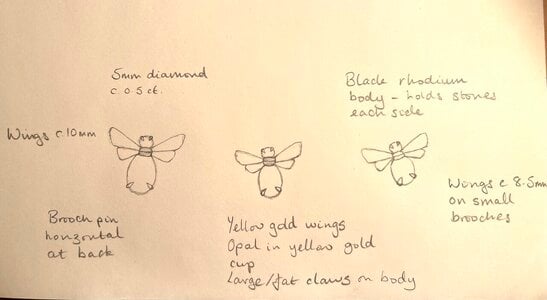 5mm diamond
c. 0.5 ct.
Black rhodium
body - holds stones
each side
Wings c.10mm
Wings c 8.5mm
on small
brooches
Brooch pin
horizontal
at back
Yellow gold wings
Opal in yellow gold
cup
Large/fat claws on body